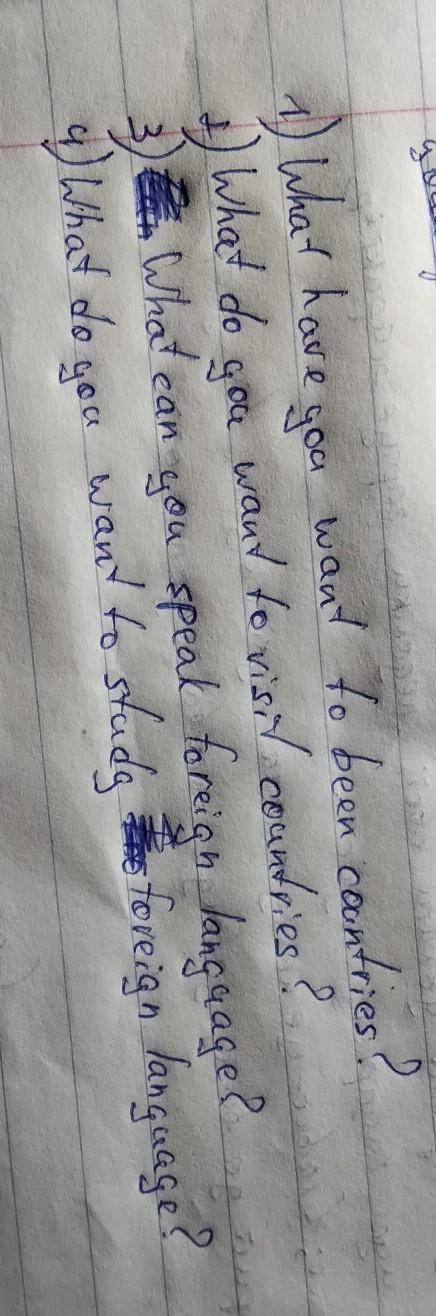 1) What have you want to been countries?
2) What do you want to visit countries?
3) What can you speak foreign language?
4) What do you want to study foreign language?